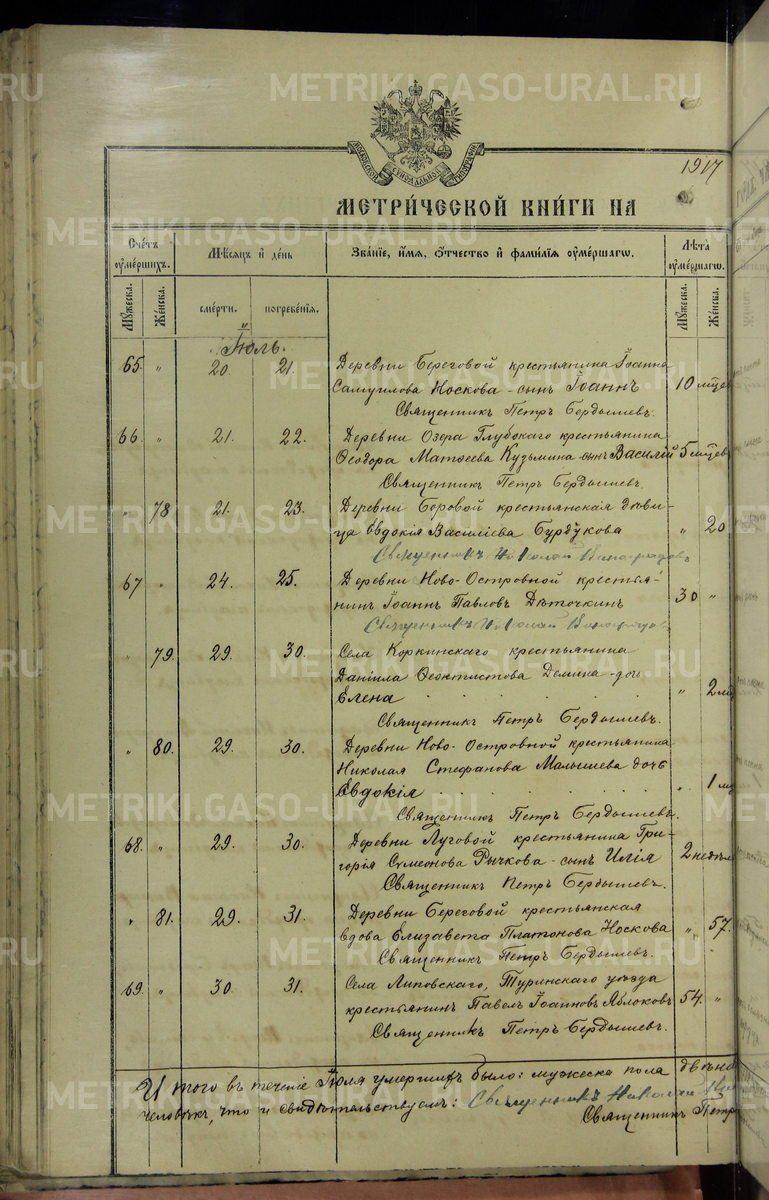 METRIKI.GASO-URAL.RU
МОСКОВСКОЙ СѴНОДАЛЬНОЙ ТИПОГРАФІИ
1917
МЕТРИ́ЧЕСКОЙ КНИ́ГИ НА
Сче́тъ ᲂу҆ме́ршихъ.
Мѣ́сяцъ и҆ де́нь
Зва́нїе, и҆́мя, ѻ҆́тчество и҆ фами́лїя ᲂу҆ме́ршагѡ.
Лѣ́та ᲂу҆ме́ршагѡ.
Му́жеска. Же́нска. сме́рти. погребе́нїя. Му́жеска. Же́нска.
Іюль.
65. " 20 21. Деревни Береговой крестьянина Іоанна
Самуилова Носкова - сынъ Іоаннъ 10 мѣсев
Священникъ Петръ Бердышевъ.
66. " 21. 22. Деревни Озера Глубокаго крестьянина
Ѳеодора Матѳеева Кузьмина - сынъ Василій 5 мѣсцев
Священникъ Петръ Бердышевъ.
" 78 21. 23. Деревни Боровой крестьянская дѣви-
ца Евдокія Василіева Бурдукова " 20
Священникъ Николай Виноградовъ
67 " 24. 25. Деревни Ново-Островной крестья-
нинъ Іоаннъ Павловъ Дѣточкинъ 30 "
Священникъ Николай Виноградов
" 79. 29. 30. Села Коркинскаго крестьянина
Даніила Ѳеоктистова Демина - дочь
Елена " 2
Священникъ Петръ Бердышевъ.
" 80. 29. 30. Деревни Ново-Островной крестьянина
Николая Стефанова Малышева дочь
Евдокія " 1
Священникъ Петръ Бердышевъ.
68. " 29. 30. Деревни Луговой крестьянина Гри-
горія Сѵмеонова Рычкова - сынъ Илія 2 недѣл
Священникъ Петръ Бердышевъ.
" 81. 29. 31. Деревни Береговой крестьянская
вдова Елизавета Платонова Носкова " 57.
Священникъ Петръ Бердышевъ.
69. " 30. 31. Села Липовскаго, Туринскаго уѣзда
крестьянинъ Павелъ Іоанновъ Яблоковъ 54. "
Священникъ Петръ Бердышевъ.
Итого въ теченіе Іюля умершихъ было: мужеска пола двѣна
человѣкъ, что и свидѣтельствуемъ: Священникъ Николай
Священникъ Петръ